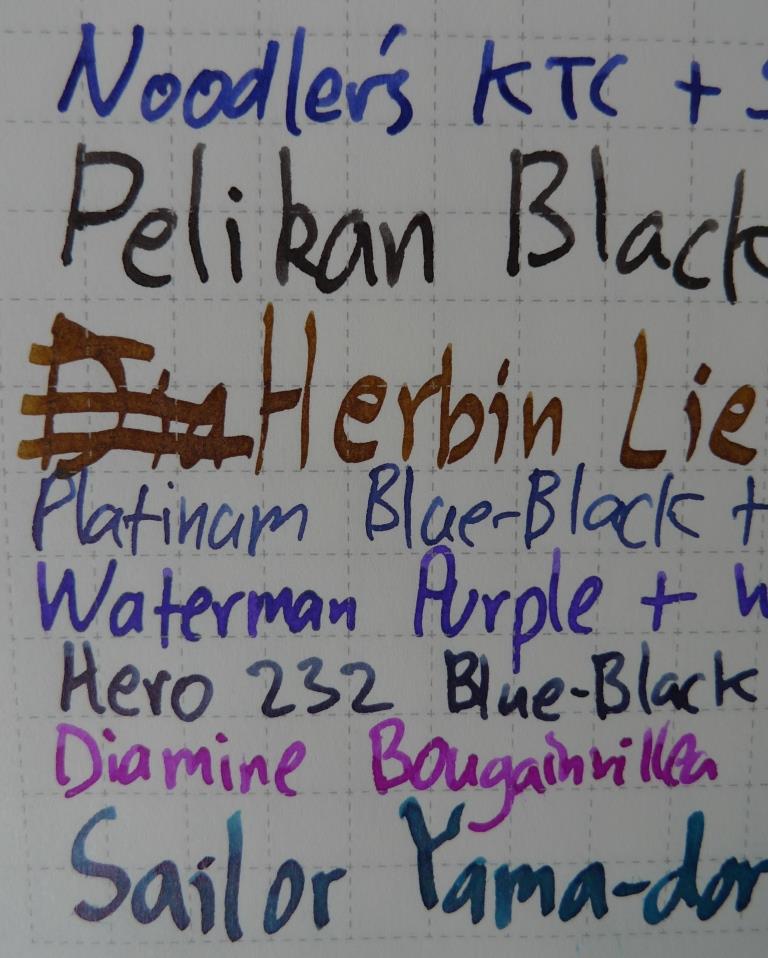 Noodler's KTC +
Pelikan Black
Herbin Lie
Platinum Blue-Black +
Waterman Purple + W
Hero 232 Blue-Black
Diamine Bougainvillea
Sailor Yama-dor